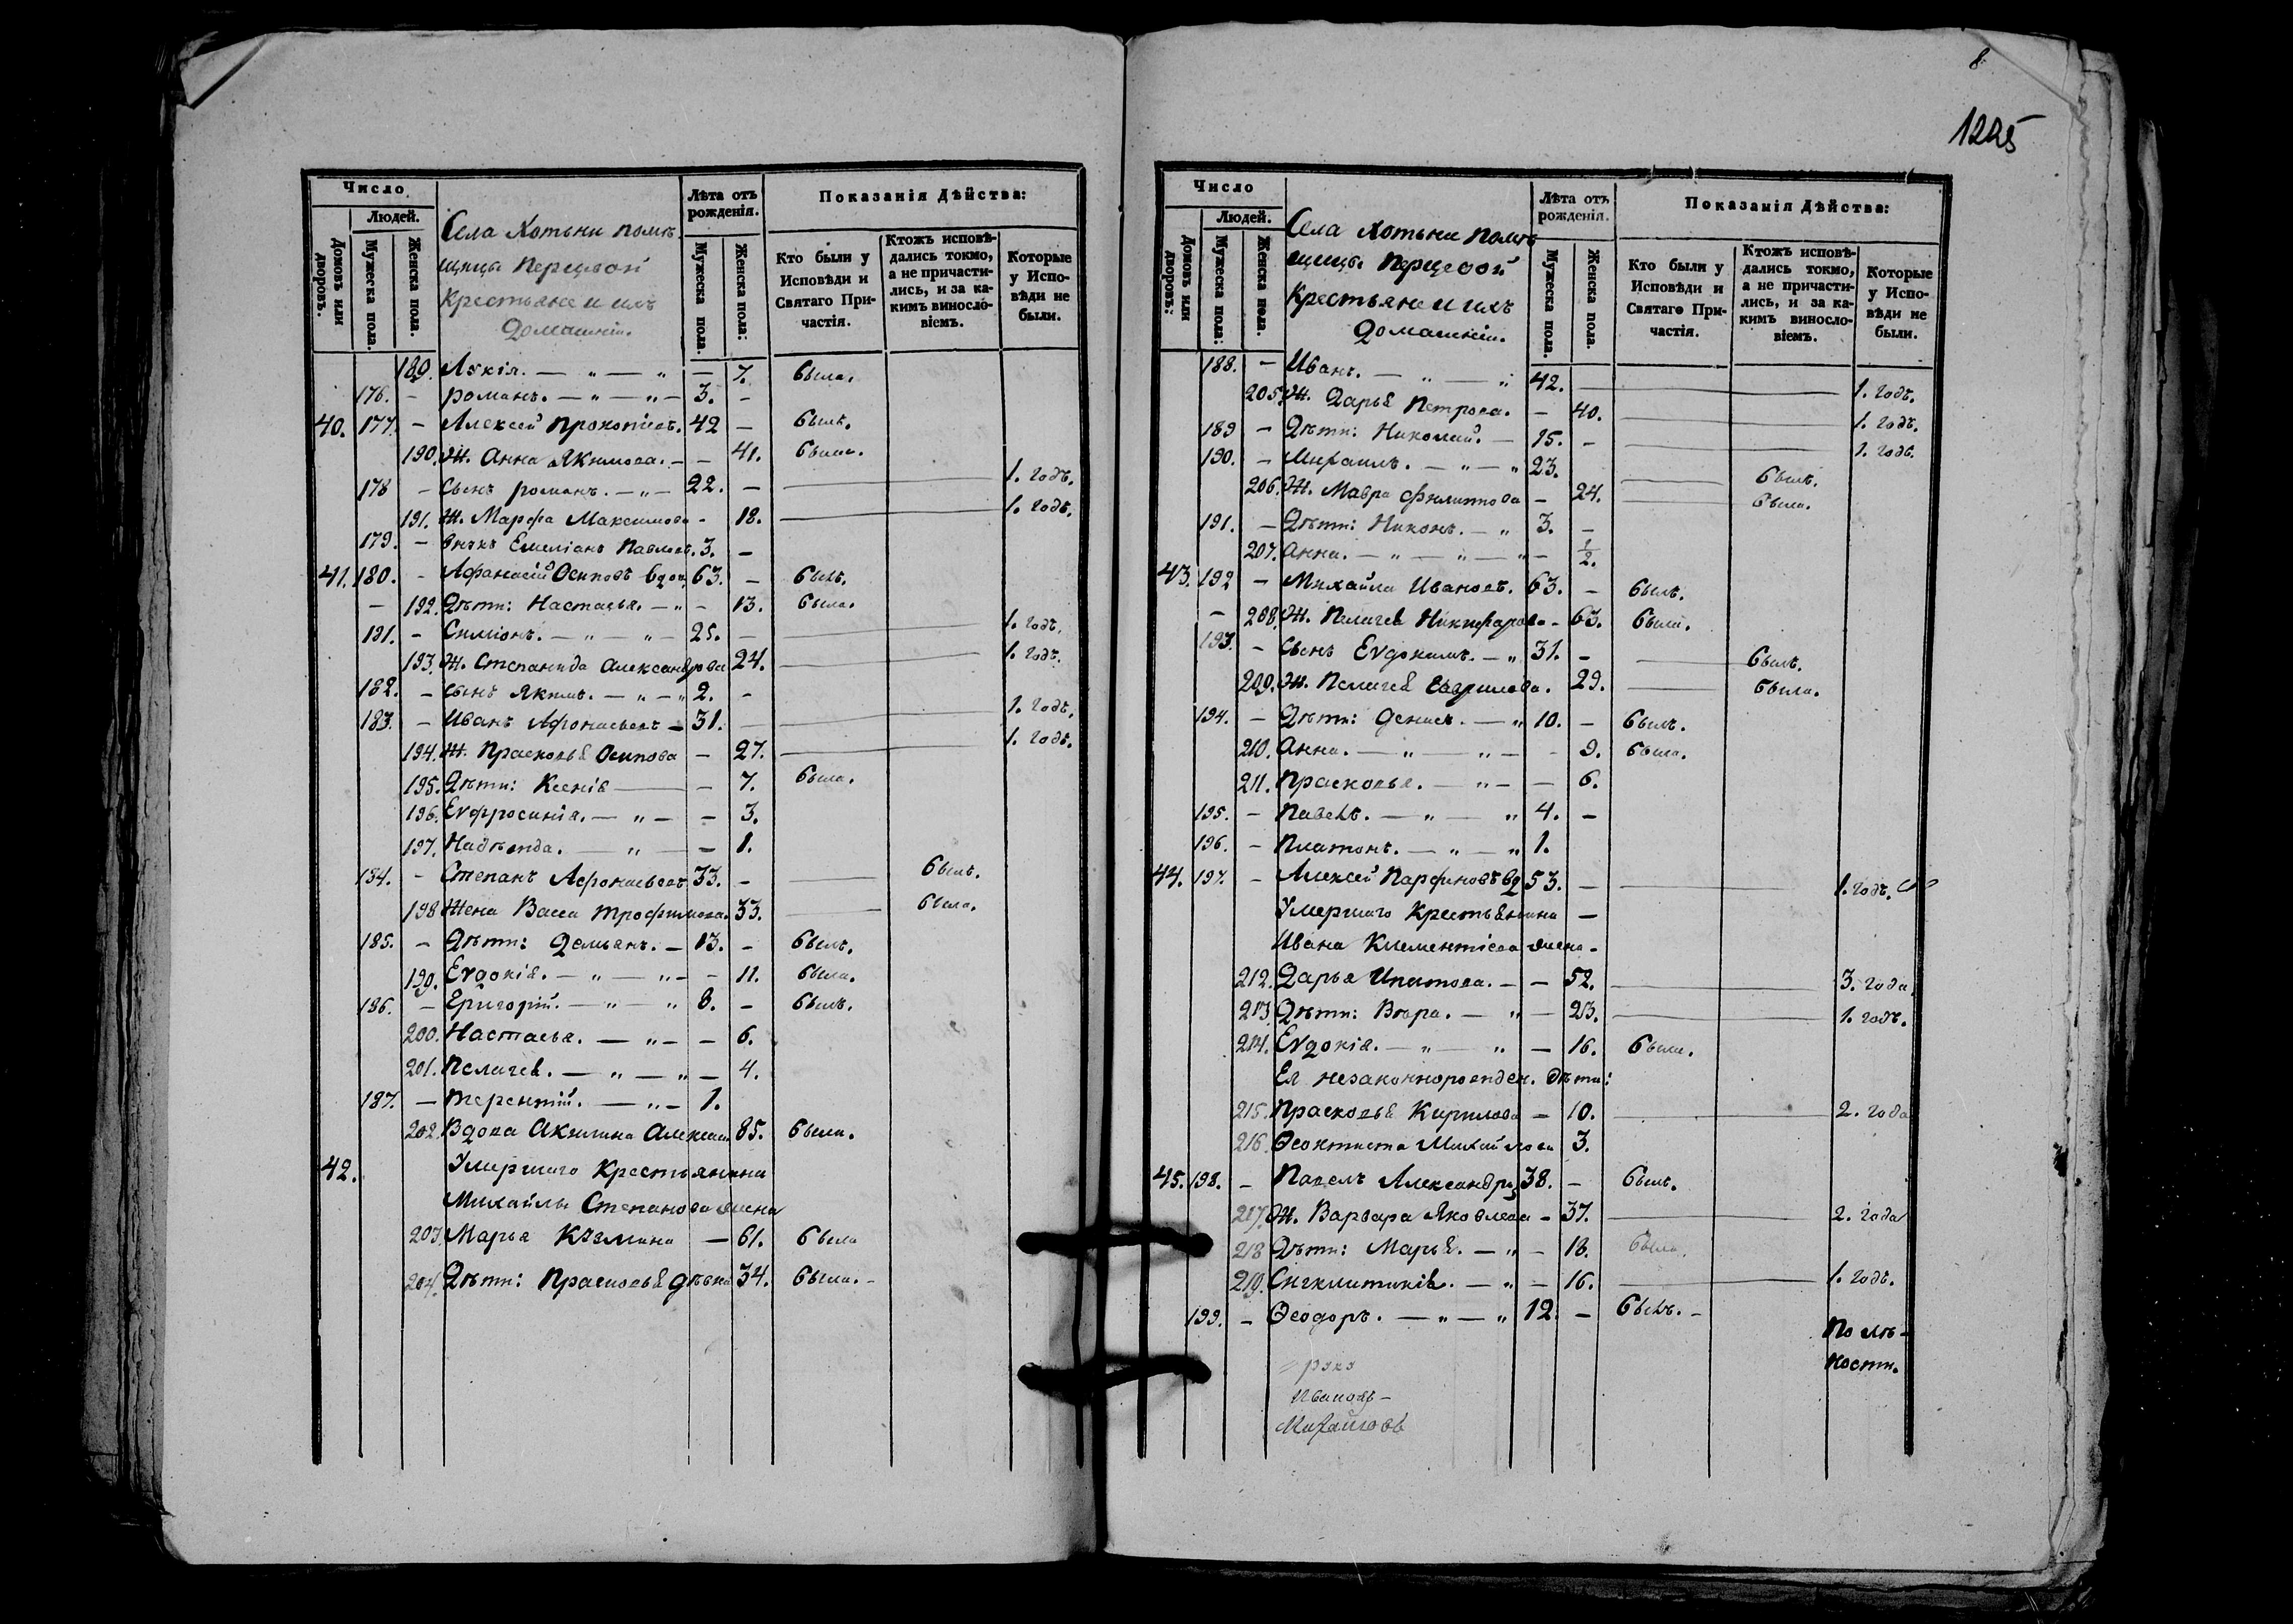 8
1225
Число
Людей.
Домовъ или дворовъ.
Мужеска пола.
Женска пола.
Села Хотыни помѣ
щицы Перцевой
Крестьяне и ихъ
Домашніи.
Лѣта отъ рожденія.
Мужеска пола.
Женска пола:
Показанія Дѣйства:
Кто были у Исповѣди и Святаго При-частія.
Ктожъ исповѣ-дались токмо, а не причасти-лись, и за ка-кимъ винослo-віемъ.
Которые у Испо-вѣди не были.
189. Лукія. — „ — „ — 7. была.
176. — романъ. — „ — „ — 3. —
40. 177. — Алексѣй Прокопіевъ. 42 — былъ.
190. Ж. Анна Якимова. — — 41. была.
178 — Сынъ романъ. — „ — 22. — 1. годъ.
191. Ж. Марфа Максимова — 18. 1. годъ.
179. — внукъ Емеліанъ Павловъ. 3. —
41. 180. — Афанасій Осиповъ вдов. 63. — былъ.
— 192. Дѣти: Настасья. — „ — 13. была.
191. — Симіонъ. — „ — „ — 25. — 1. годъ.
193. Ж. Степанида Александрова 24. 1. годъ.
182. — сынъ Якимъ. — „ — „ 2. —
183. — Иванъ Афонасьевъ — 31. — 1. годъ.
194. Ж. Прасковья Осипова — 27. 1. годъ.
195. Дѣти: Ксенія — — 7. была.
196. Евфросинія. — „ — — 3.
197. Надѣжда. — „ — — 1.
184. — Степанъ Афонасьевъ 33. — былъ.
198 Жена Васса Трофимова. 33. была.
185. — Дѣти: Демьянъ. — 13. — былъ.
199. Евдокія. — „ — „ — — 11. была.
186. — Григорій. — „ — „ 8. — былъ.
200. Настасья. — „ — — 6.
201. Пелагея. — „ — „ — 4.
187. — Терентій. — „ — 1.
202. Вдова Акилина Алексѣев 85. была.
42. Умершаго Крестьянина
Михайлы Степанова жена
203. Марья Кузмина — 61. была
204. Дѣти: Прасковья дѣвка 34. была. —
Число
Людей.
Домовъ или дворовъ:
Мужеска пола:
Женска пола.
Села Хотыни Помѣ
щицы Перцевой
Крестьяне и ихъ
Домашніи.
Лѣта отъ рожденія.
Мужеска пола.
Женска пола:
Показанія Дѣйства:
Кто были у Исповѣди и Святаго При-частія.
Ктожъ исповѣ-дались токмо, а не причасти-лись, и за ка-кимъ винослo-віемъ.
Которые у Испо-вѣди не были.
188. — Иванъ. — „ — „ 42. — 1. годъ.
205. Ж. Дарья Петрова. — 40. 1. годъ.
189 — Дѣти: Николай. — 15. — 1. годъ.
190. — Михаилъ. — „ — „ 23. былъ.
206. Ж. Мавра Филиппова — 24. была.
191. — Дѣти: Никонъ. — „ 3. —
207. Анна. — „ — „ — „ — 1/2.
43. 192 — Михайла Ивановъ. 63. — былъ.
— 208. Ж. Пелагея Никифарова — 63. была.
193. — Сынъ Евдокимъ. — „ 31. — былъ.
209. Ж. Пелагея Гаврилова. 29. была.
194. — Дѣти: Денисъ. — „ 10. — былъ.
210. Анна. — „ — „ — — 9. была.
211. Прасковья. — „ — — 6.
195. — Павелъ. — „ — „ 4. —
196. — Платонъ. — „ — „ 1.
44. 197. — Алексѣй Парфеновъ вд 53. — 1. годъ.
Умершаго Крестьянина —
Ивана Климентіева жена —
212. Дарья Ипатова. — — 52. 3. года
213. Дѣти: Вѣра. — „ — 23. 1. годъ.
214. Евдокія. — „ — „ — 16. была.
Ея незаконнорожден. дѣти:
215. Прасковья Кирилова — 10. 2. года
216. Ѳеоктиста Михайлова 3.
45. 198. — Павелъ Александр 38. — былъ.
217. Ж. Варвара Яковлева — 37. 2. года
218 Дѣти: Марья. — „ — 18. была.
219. Сигклитикія. — „ — 16. 1. годъ.
199. — Ѳеодоръ. — „ — „ 12. — былъ. —
По лѣ-
ности.
Иванов
Михайлов